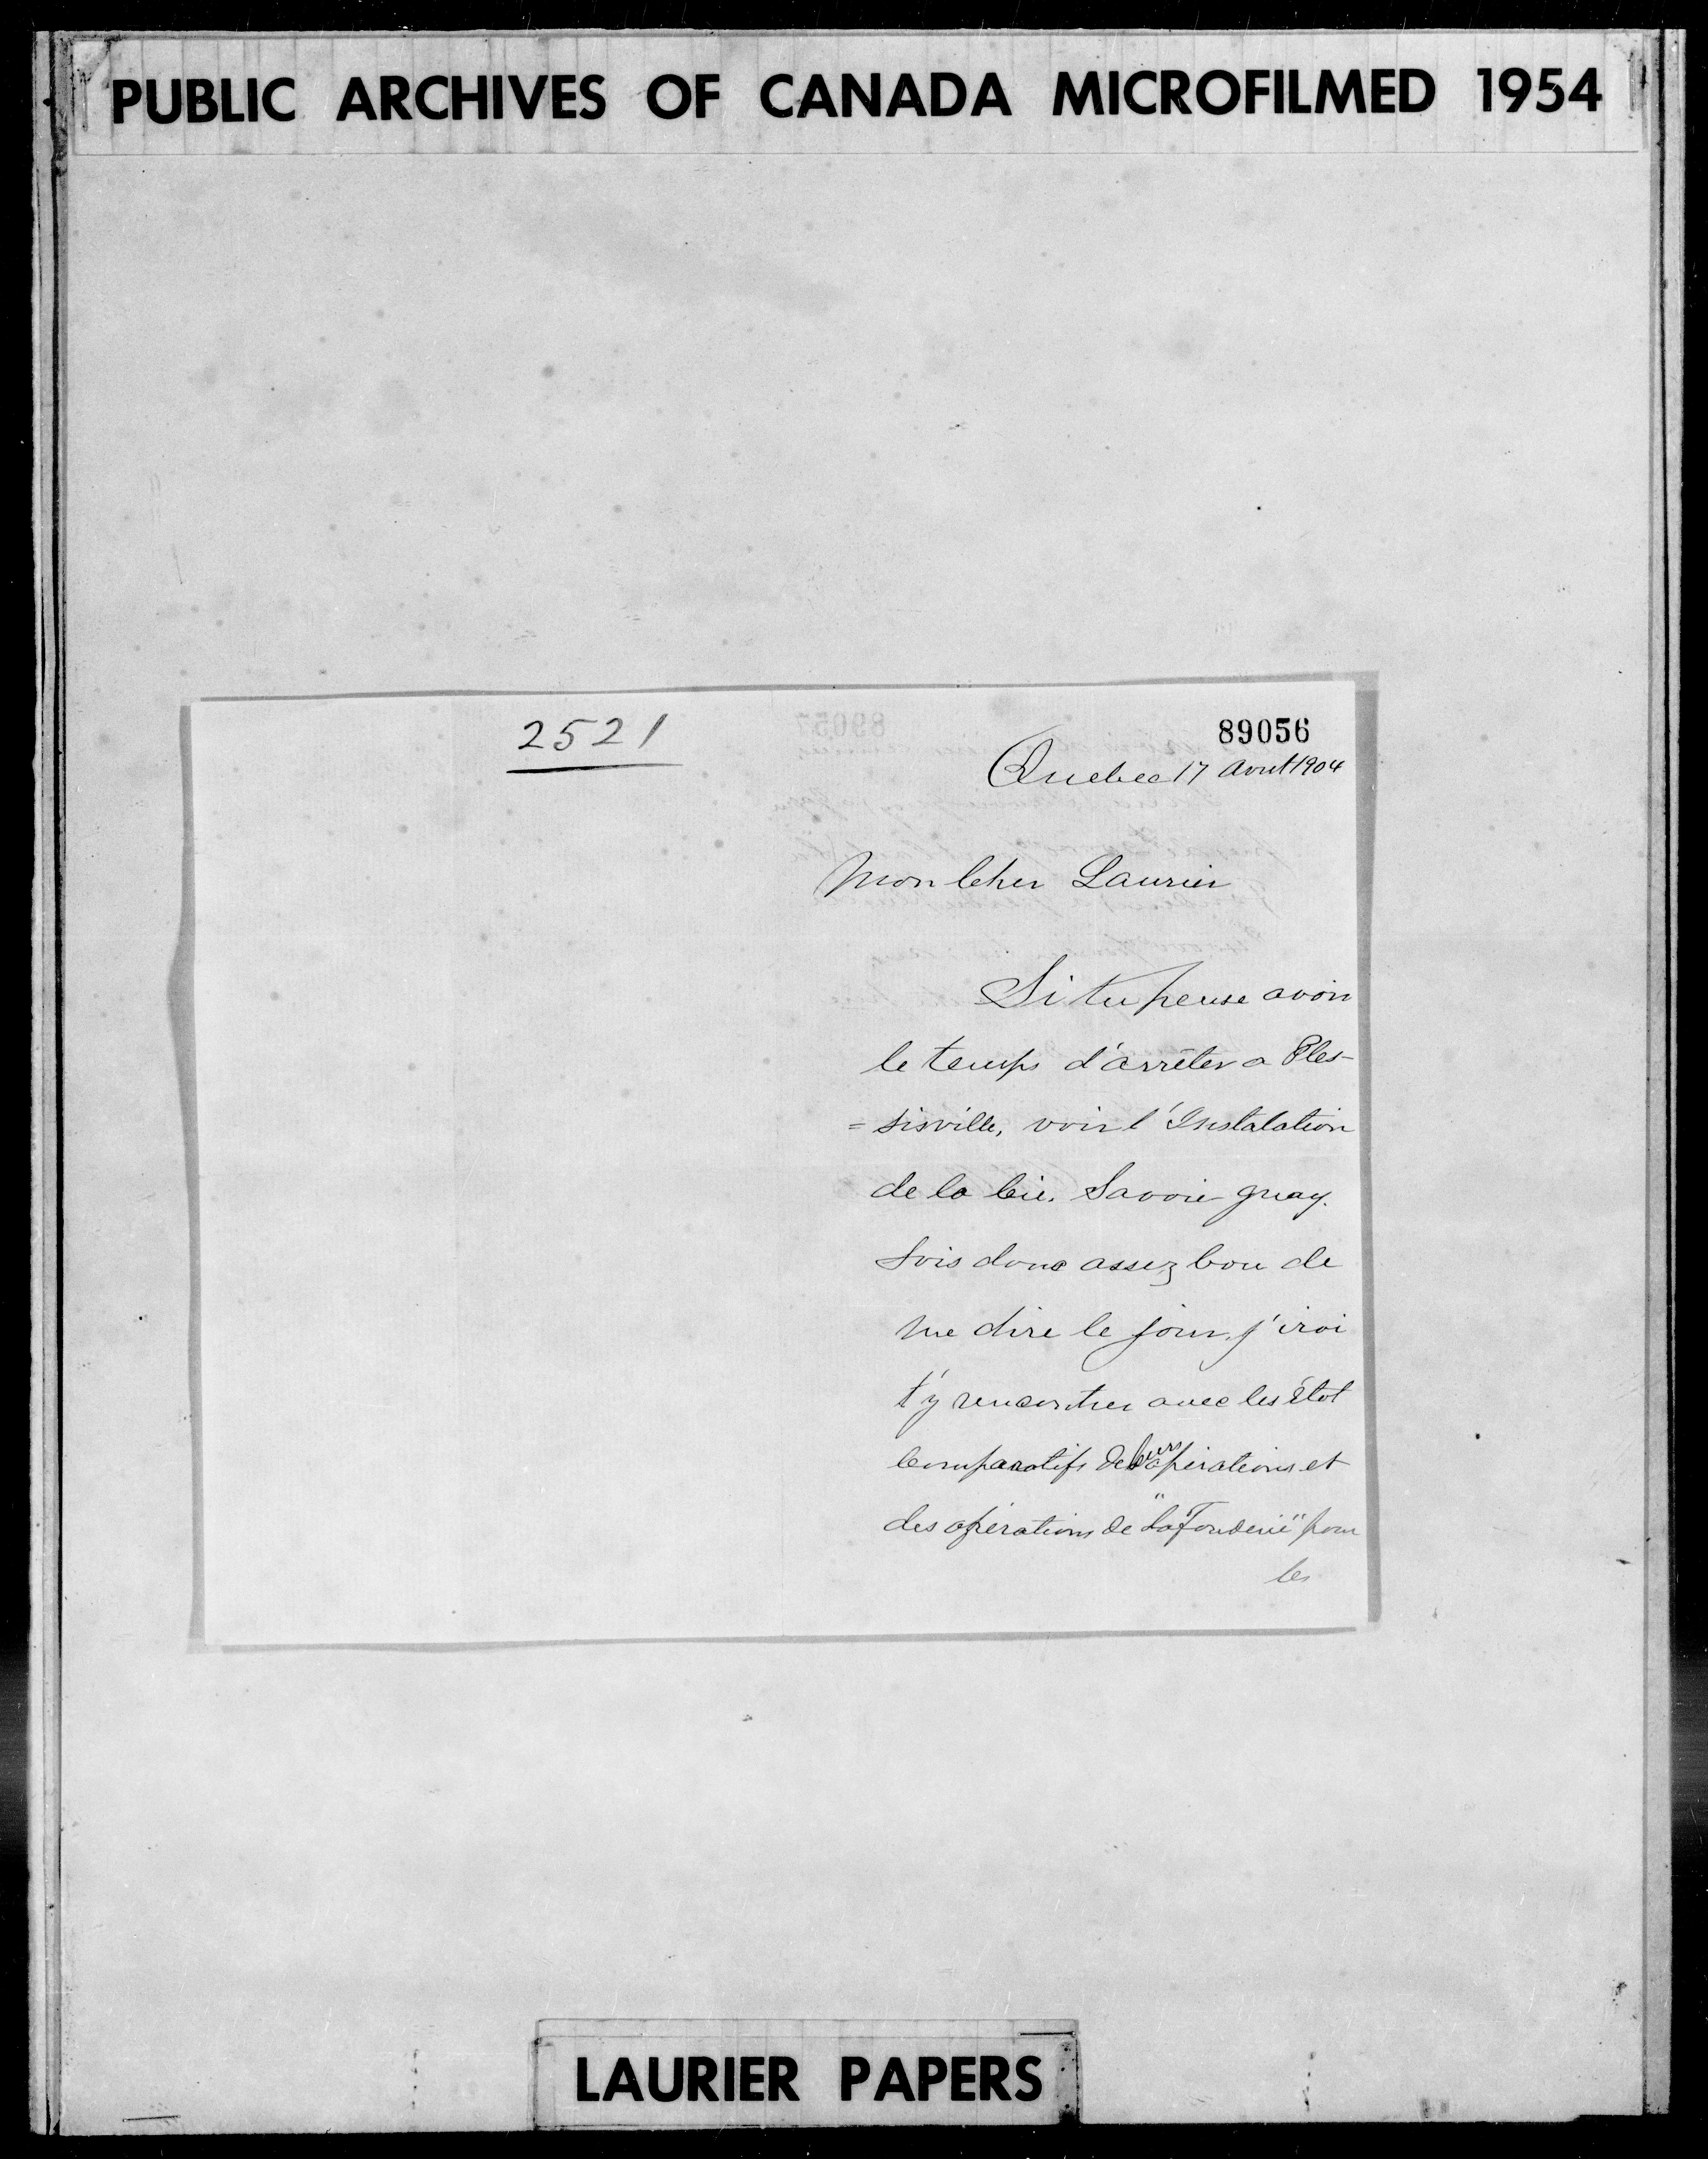 PUBLIC ARCHIVES OF CANADA MICROFILMED 1954
2521
89056
Quebec 17 Aout 1904
Mon Cher Laurier
Si tu pense avoir
le temps d'arrêter a Ples-
= sisville, voir l'Instalation
de la Cie. Savoie guay.
Sois donc assez bon de
me dire le jour, j'irai
t'y rencontrer avec les état
Comparatifs de leurs opérations et
des opérations de "La Fonderie" pour
les
LAURIER PAPERS